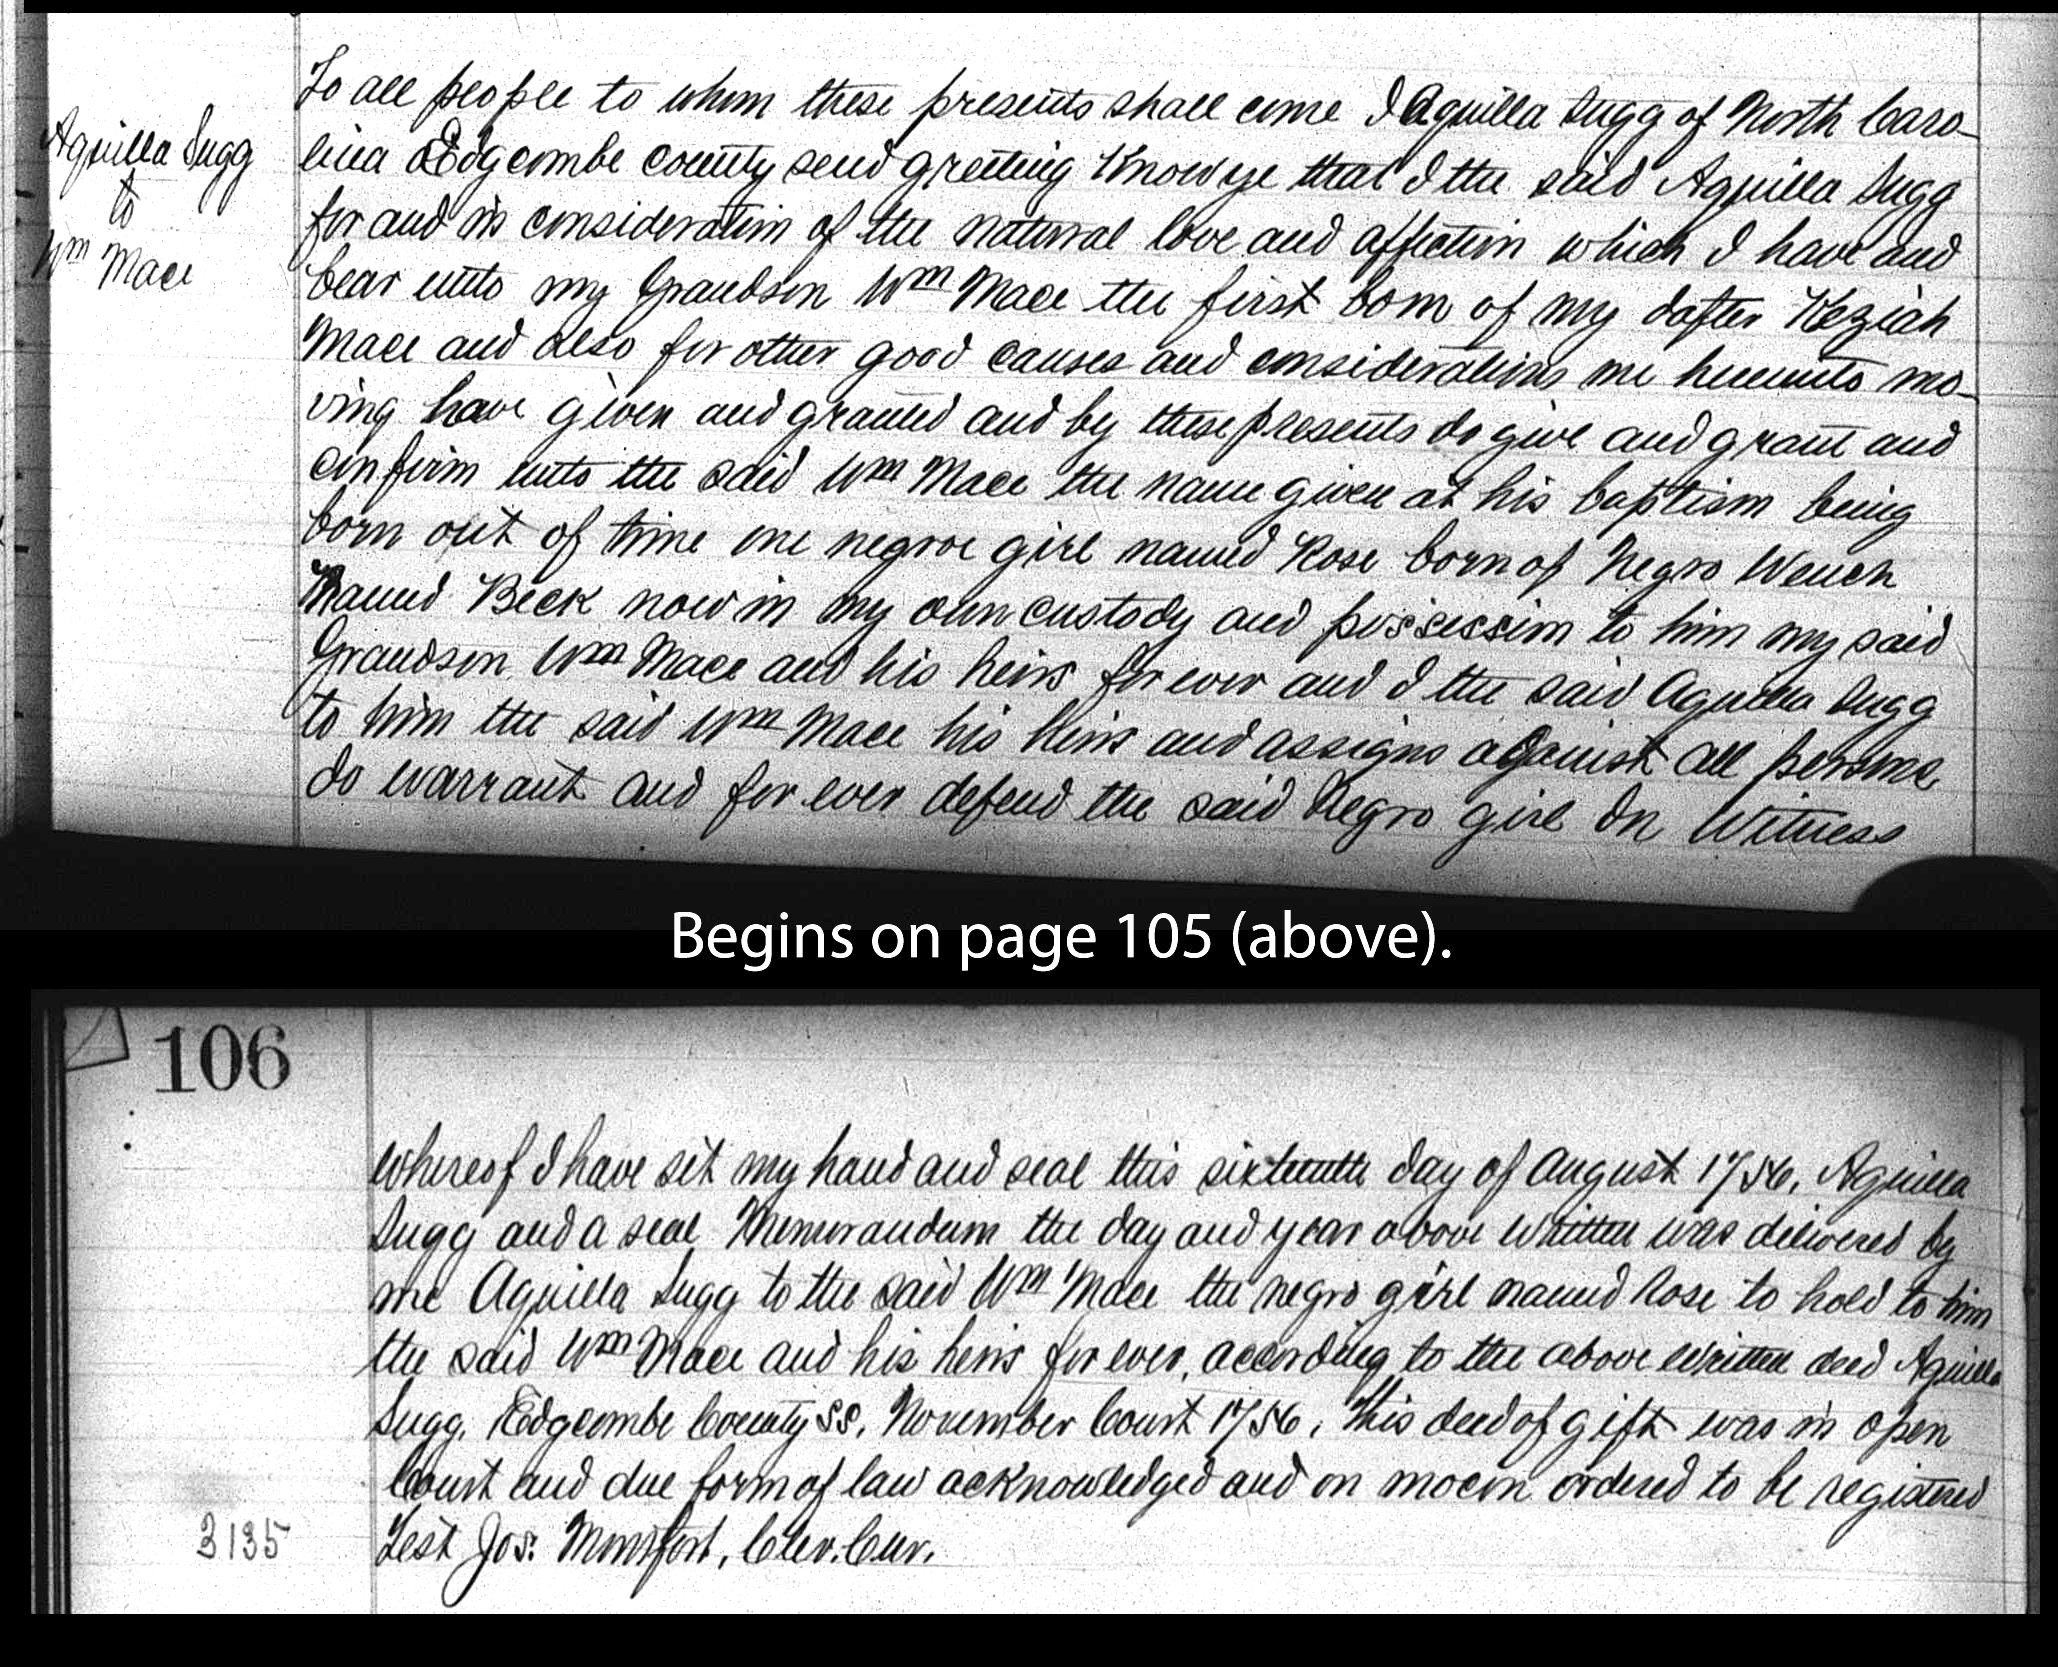 Aquilla Sugg
to
Wm Mace
To all people to whom these presents shall come I Aquilla Sugg of North Caro-
lina Edgcombe county send greeting Know ye that I the said Aquilla Sugg
for and in consideration of the natural love and affection which I have and
bear unto my Grandson Wm Mace the first born of my dafter Keziah
Mace and also for other good causes and considerations me hereunto mo-
ving have given and granted and by these presents do give and grant and
confirm unto the said Wm Mace the name given at his baptism being
born out of time one negroe girl named Rose born of Negro Wench
Named Beck now in my own custody and possession to him my said
Grandson Wm Mace and his heirs for ever and I the said Aquilla Sugg
to him the said Wm Mace his heirs and assigns against all persons
do warrant and for ever defend the said Negro girl In Witness
Begins on page 105 (above).
106
whereof I have set my hand and seal this sixteenth day of August 1756. Aquilla
Sugg and a seal Memorandum the day and year above written was delivered by
me Aquilla Sugg to the said Wm Mace the negro girl named Rose to hold to him
the said Wm Mace and his heirs for ever, according to the above written deed Aquilla
Sugg. Edgcombe County SS. November Court 1756. This deed of gift was in open
Court and due form of law acknowledged and on mocon ordered to be registered
3135
Test Jos: Montfort, Cler. Cur.